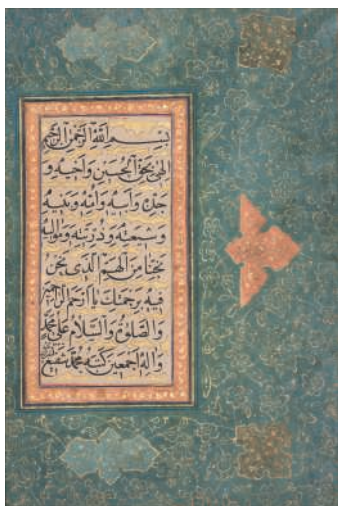 بِسْمِ اللّٰهِ الرَّحْمٰنِ الرَّحِيْمِ
اِلٰهِى بِحَقِّ الْحُسَيْنِ وَاَخِيهِ وَ
جَدِّهِ وَاَبِيهِ وَاُمِّهِ وَبَنِيهِ
وَشِيعَتِهِ وَذُرِّيَّتِهِ وَمَوَالِيهِ
نَجِّنَا مِنَ الْهَمِّ الَّذِى نَحْنُ
فِيهِ بِرَحْمَتِكَ يَا اَرْحَمَ الرَّاحِمِينَ
وَالصَّلٰوةُ وَالسَّلَامُ عَلٰى مُحَمَّدٍ
وَاٰلِهِ اَجْمَعِينَ كتبه مُحَمَّد شَفِيع